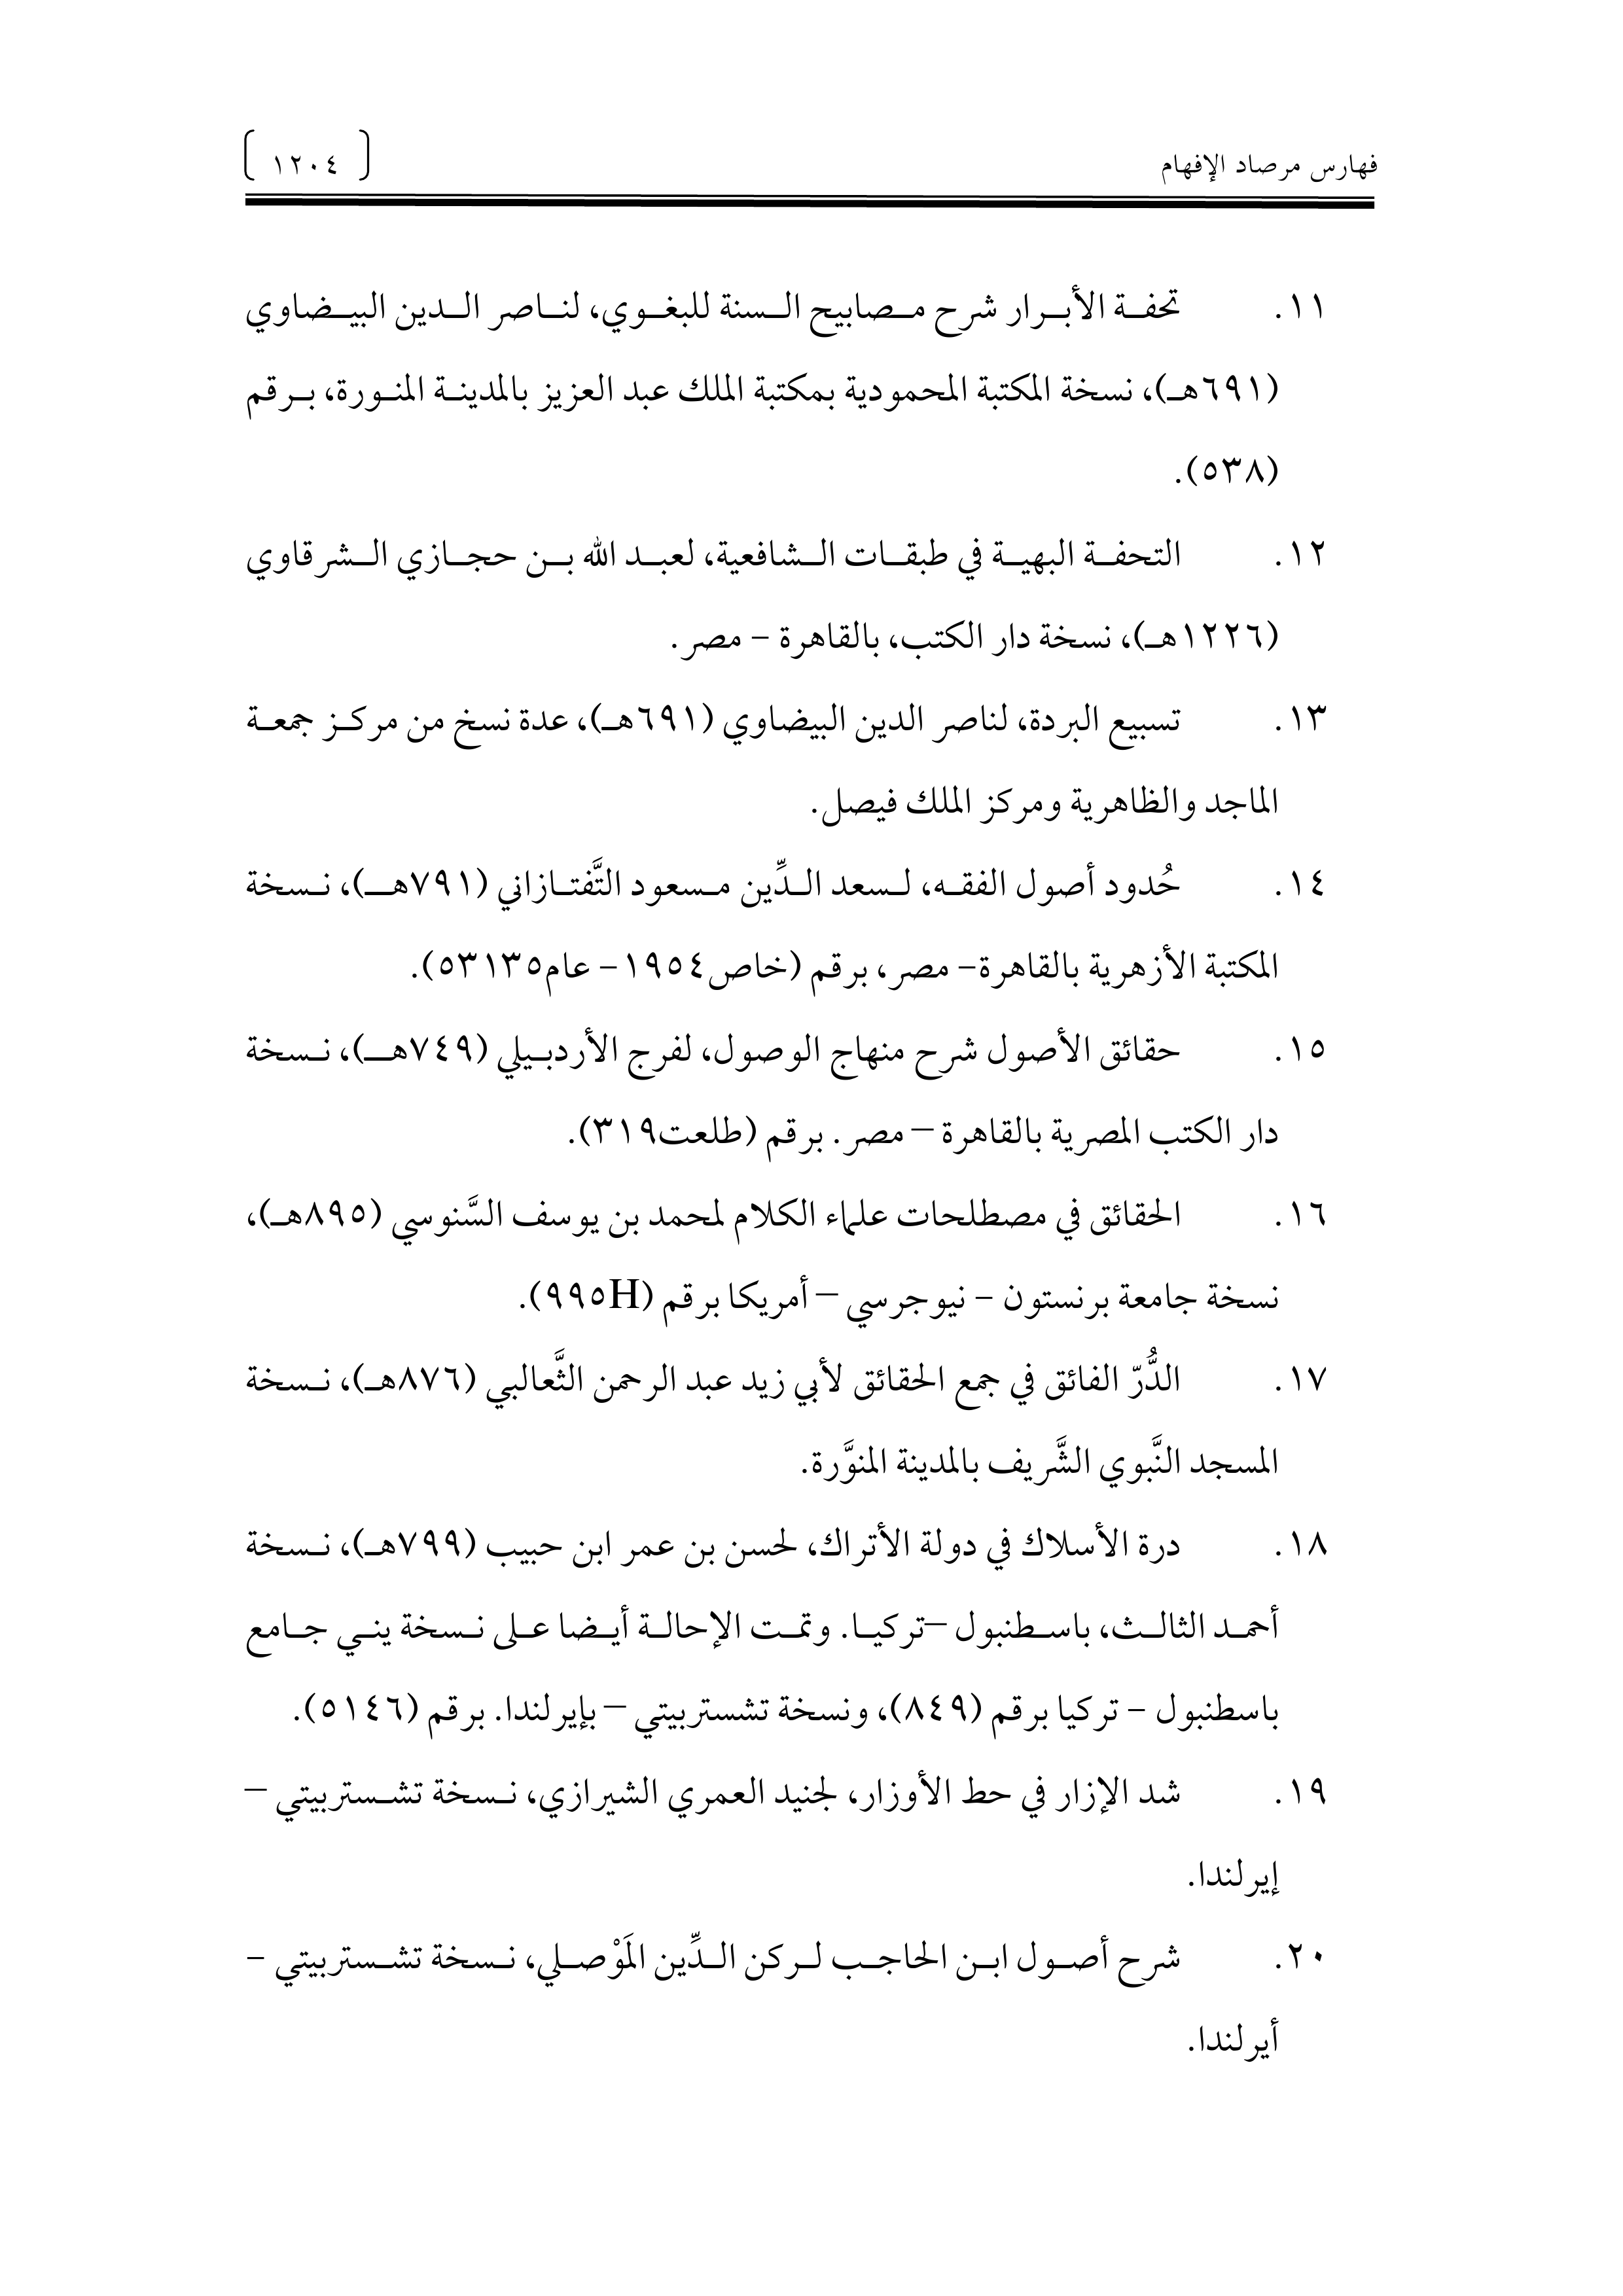 فهارس مرصاد الإفهام [ ١٢٠٤ ]
١١. تحفة الأبرار شرح مصابيح السنة للبغوي، لناصر الدين البيضاوي
(٦٩١هـ)، نسخة المكتبة المحمودية بمكتبة الملك عبد العزيز بالمدينة المنورة، برقم
(٥٣٨).
١٢. التحفة البهية في طبقات الشافعية، لعبد الله بن حجازي الشرقاوي
(١٢٢٦هـ)، نسخة دار الكتب، بالقاهرة – مصر.
١٣. تسبيع البردة، لناصر الدين البيضاوي (٦٩١هـ)، عدة نسخ من مركز جمعة
الماجد والظاهرية ومركز الملك فيصل.
١٤. حُدود أصول الفقه، لسعد الدِّين مسعود التَّفتازاني (٧٩١هـ)، نسخة
المكتبة الأزهرية بالقاهرة– مصر، برقم (خاص١٩٥٤– عام٥٣١٣٥).
١٥. حقائق الأصول شرح منهاج الوصول، لفرج الأردبيلي (٧٤٩هـ)، نسخة
دار الكتب المصرية بالقاهرة – مصر. برقم (طلعت٣١٩).
١٦. الحقائق في مصطلحات علماء الكلام لمحمد بن يوسف السَّنوسي (٨٩٥هـ)،
نسخة جامعة برنستون – نيوجرسي – أمريكا برقم (٩٩٥H).
١٧. الدُّرّ الفائق في جمع الحقائق لأبي زيد عبد الرحمن الثَّعالبي (٨٧٦هـ)، نسخة
المسجد النَّبوي الشَّريف بالمدينة المنوَّرة.
١٨. درة الأسلاك في دولة الأتراك، لحسن بن عمر ابن حبيب (٧٩٩هـ)، نسخة
أحمد الثالث، باسطنبول –تركيا. وتمت الإحالة أيضا على نسخة يني جامع
باسطنبول – تركيا برقم (٨٤٩)، ونسخة تشستربيتي – بإيرلندا. برقم (٥١٤٦).
١٩. شد الإزار في حط الأوزار، لجنيد العمري الشيرازي، نسخة تشستربيتي –
إيرلندا.
٢٠. شرح أصول ابن الحاجب لركن الدِّين المَوْصلي، نسخة تشستربيتي –
أيرلندا.